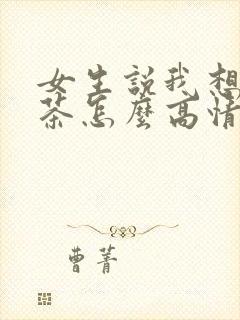 女生說我想
茶怎麼高情
曹菁